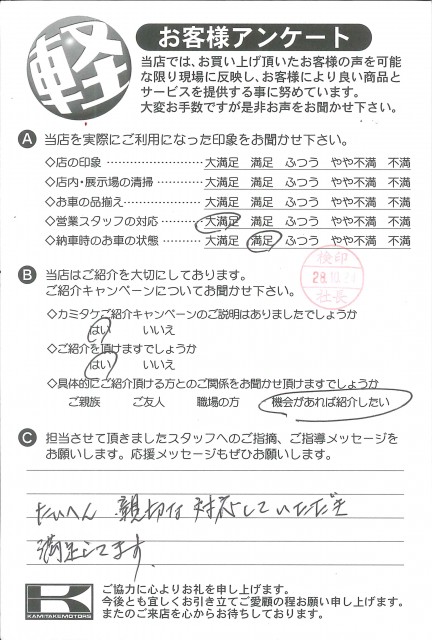 軽
お客様アンケート
当店では、お買い上げ頂いたお客様の声を可能
な限り現場に反映し、お客様により良い商品と
サービスを提供する事に努めています。
大変お手数ですが是非お声をお聞かせ下さい。
A 当店を実際にご利用になった印象をお聞かせ下さい。
◇店の印象 ……………… 大満足 満足 ふつう やや不満 不満
◇店内・展示場の清掃 ……… 大満足 満足 ふつう やや不満 不満
◇お車の品揃え…………… 大満足 満足 ふつう やや不満 不満
◇営業スタッフの対応 ……… 大満足 満足 ふつう やや不満 不満
◇納車時のお車の状態 ……… 大満足 満足 ふつう やや不満 不満
検印
社長
B 当店はご紹介を大切にしております。
ご紹介キャンペーンについてお聞かせ下さい。
◇カミタケご紹介キャンペーンのご説明はありましたでしょうか
はい いいえ
◇ご紹介を頂けますでしょうか
はい いいえ
◇具体的にご紹介頂ける方とのご関係をお聞かせ頂けますでしょうか
ご親族 ご友人 職場の方 機会があれば紹介したい
C 担当させて頂きましたスタッフへのご指摘、ご指導メッセージを
お願いします。応援メッセージもぜひお願いします。
たいへん 親切な対応していただき
満足してます。
K
KAMITAKEMOTORS
ご協力に心よりお礼を申し上げます。
今後とも宜しくお引き立てご愛顧の程お願い申し上げます。
またのご来店を心からお待ちしております。